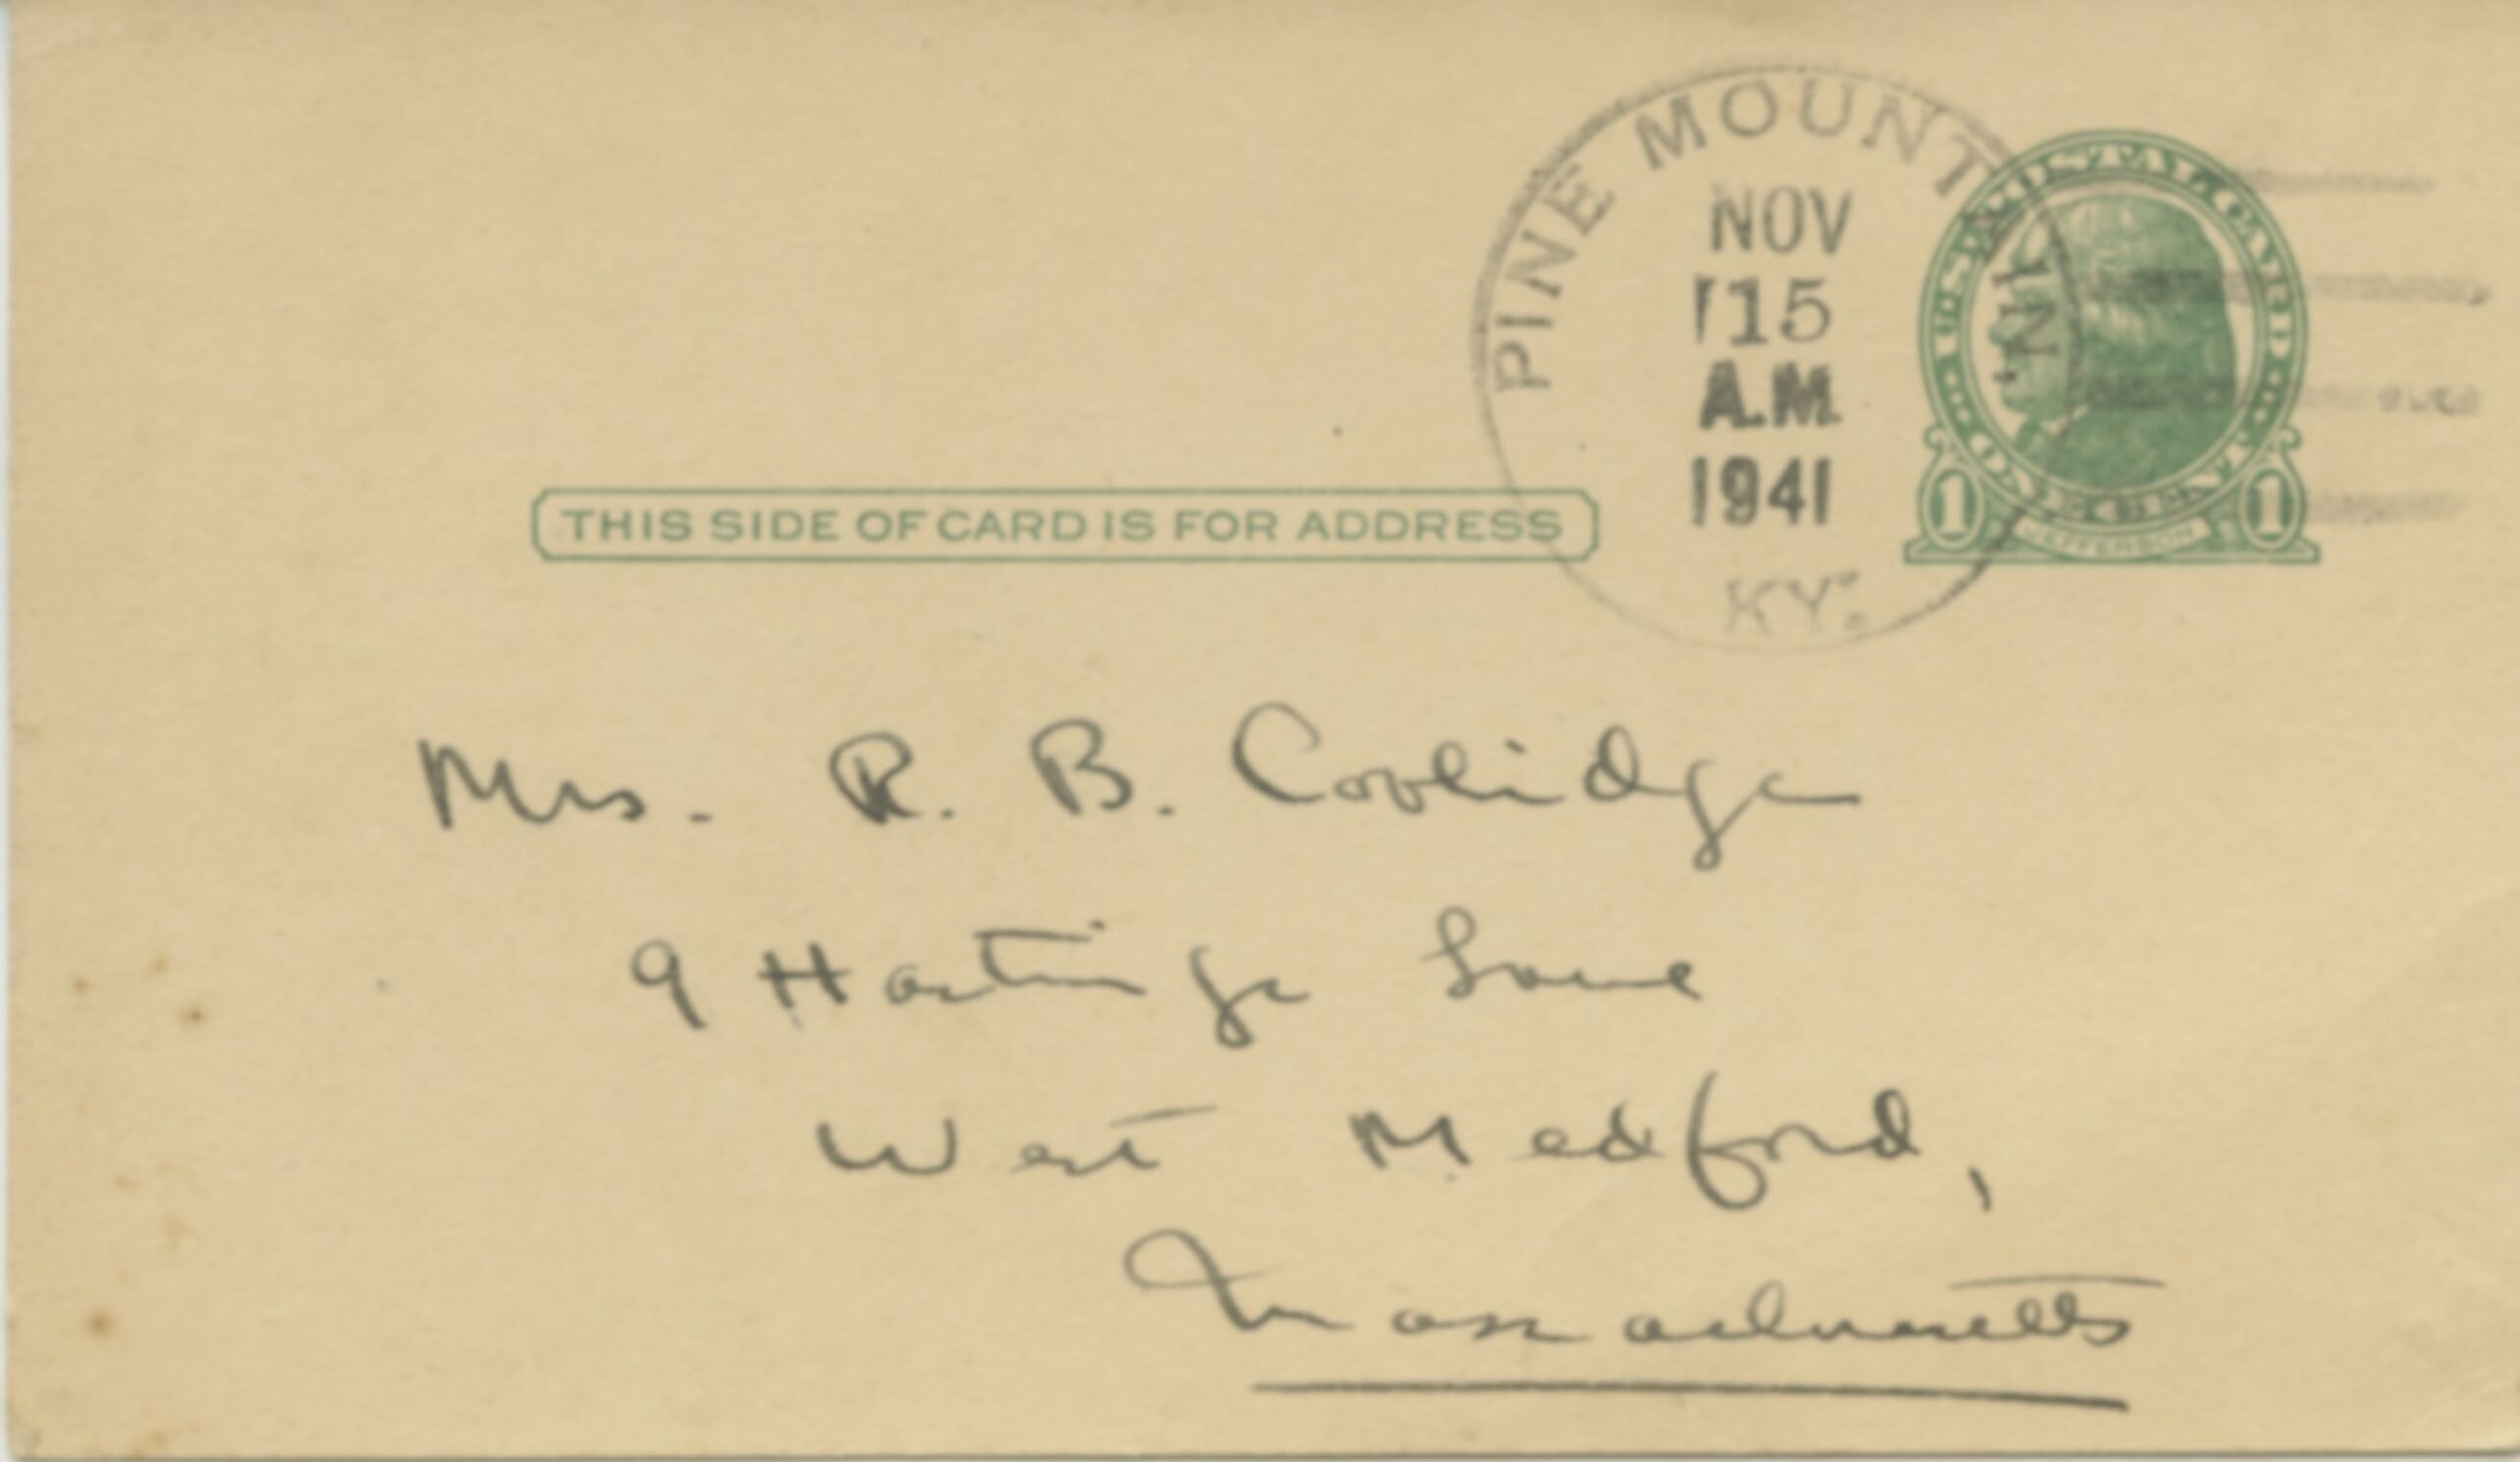 PINE MOUNTAIN
NOV
15
A.M.
1941
KY.
U.S. POSTAL CARD
ONE CENT
1 JEFFERSON 1
THIS SIDE OF CARD IS FOR ADDRESS
Mrs. R. B. Coolidge
9 Hastings Lane
West Medford,
Massachusetts